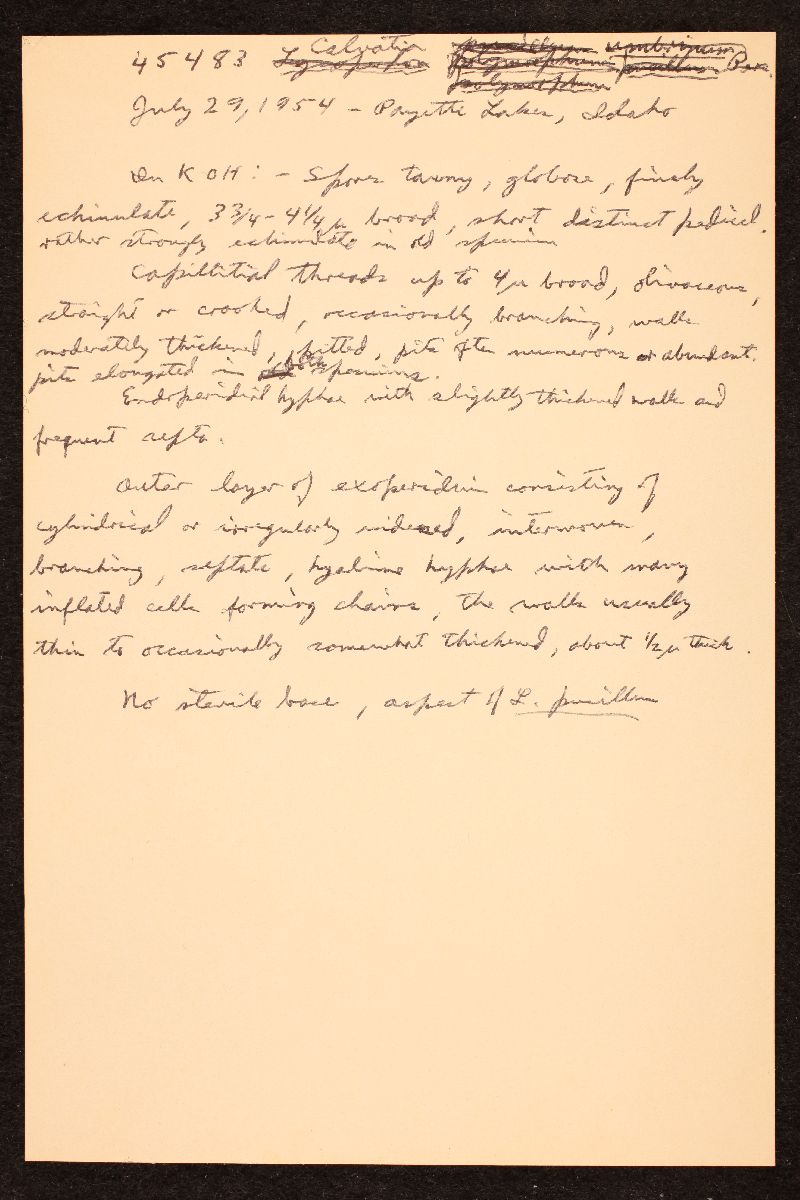 45483 Lycoperdon Calvatia pusillum umbrinum
polymorphum pusillum Pers.
polymorphum
July 29, 1954 - Payette Lakes, Idaho
In KOH: - Spores tawny, globose, finely
echinulate, 3 3/4 - 4 1/4 µ broad, short distinct pedicel.
rather strongly echinulate in old specimen
Capillitial threads up to 4µ broad, olivaceous,
straight or crooked, occasionally branching, walls
moderately thickened, pitted, pits often numerous or abundant.
pits elongated in old specimens.
Endoperidial hyphae with slightly thickened walls and
frequent septa.
Outer layer of exoperidium consisting of
cylindrical or irregularly widened, interwoven,
branching, septate, hyaline hyphae with many
inflated cells forming chains, the walls usually
thin to occasionally somewhat thickened, about 1/2 µ thick.
No sterile base, aspect of L. pusillum